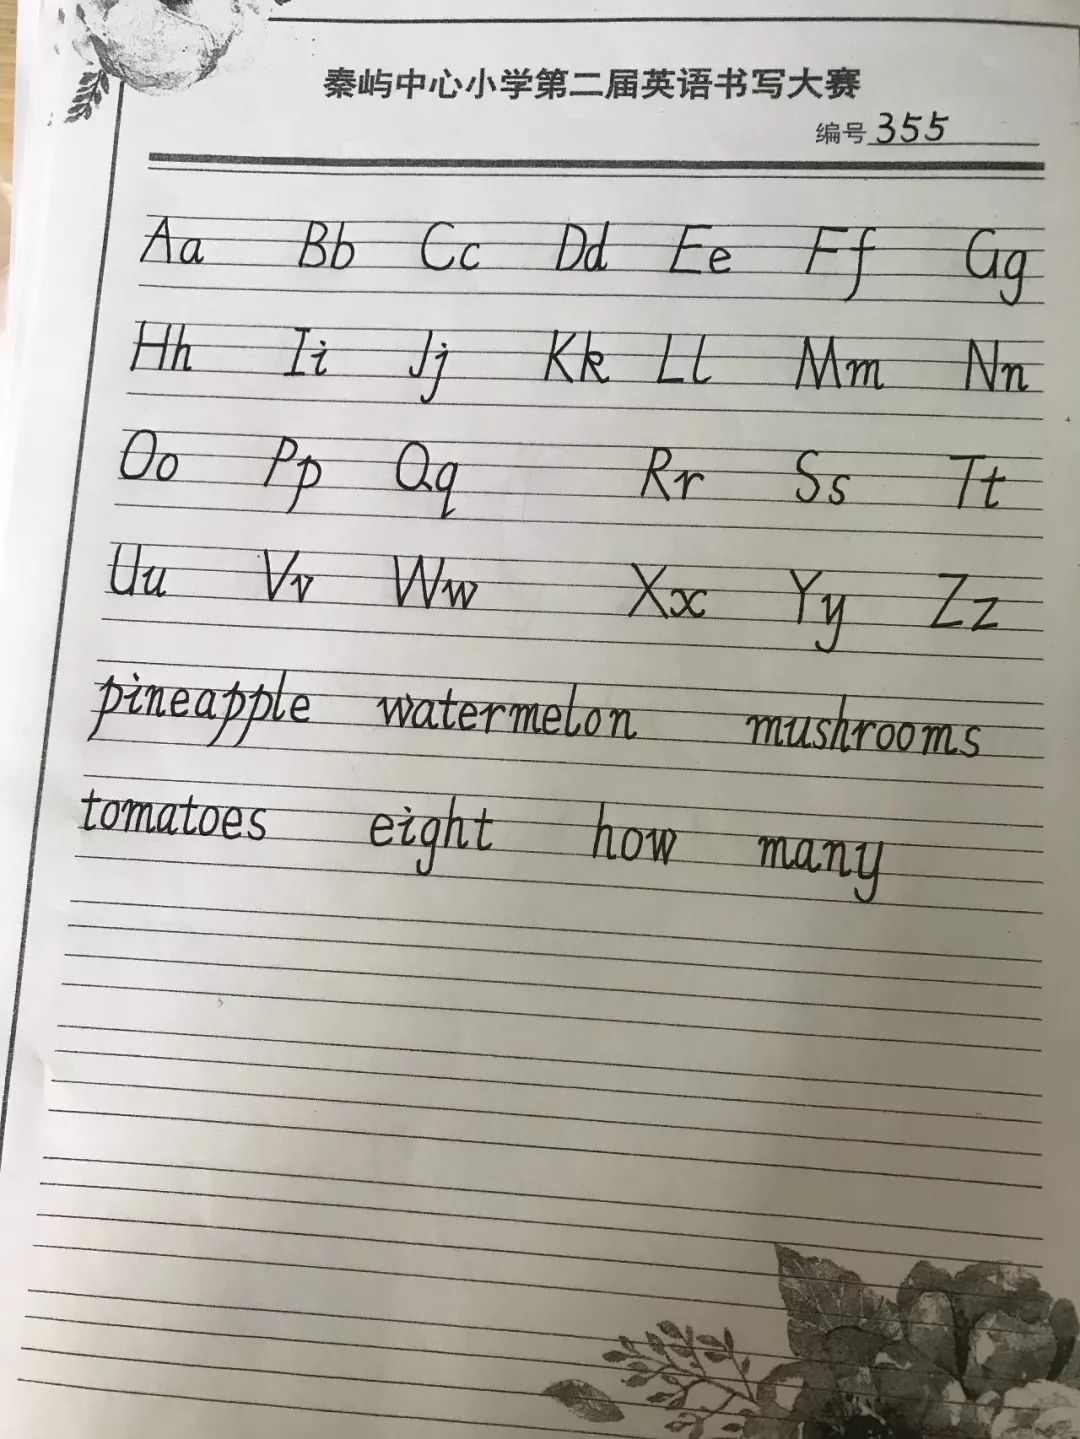 秦屿中心小学第二届英语书写大赛
编号 355
Aa Bb Cc Dd Ee Ff Gg
Hh Ii Jj Kk Ll Mm Nn
Oo Pp Qq Rr Ss Tt
Uu Vv Ww Xx Yy Zz
pineapple watermelon mushrooms
tomatoes eight how many